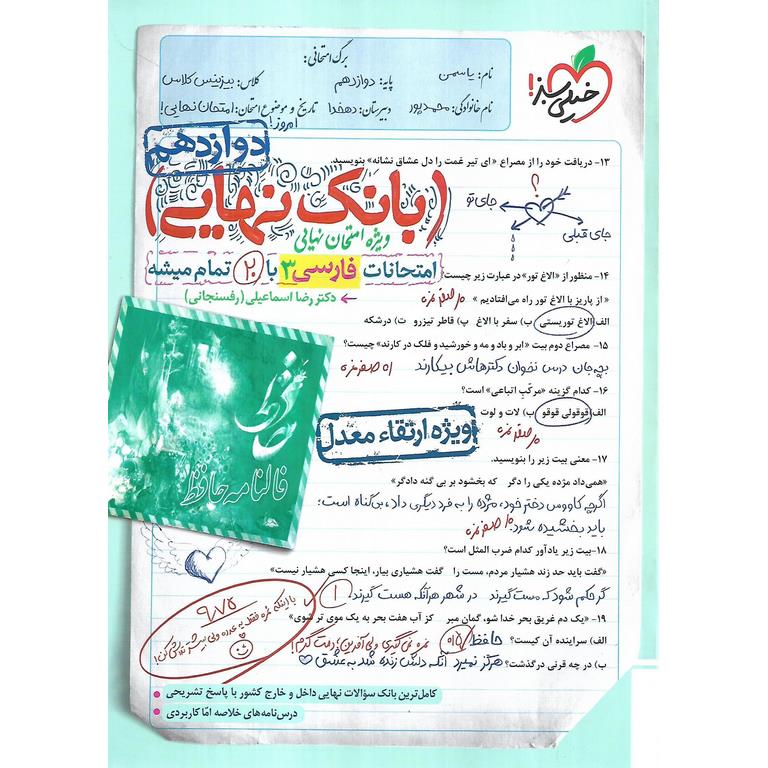 برگ امتحانی:
نام: یاسمن پایه: دوازدهم کلاس: بیزینس کلاس
نام خانوادگی: محمدپور دبیرستان: دهخدا تاریخ و موضوع امتحان: امتحان نهایی!
امروز!
خیلی سبز!
دوازدهم
۱۳- دریافت خود را از مصراع «ای تیر غمت را دل عشاق نشانه» بنویسید.
(بانک نهایی)
؟
جای تو
جای قبلی
ویژه امتحان نهایی
امتحانات فارسی ۳ با ۲۰ تمام میشه
دکتر رضا اسماعیلی (رفسنجانی)
۱۴- منظور از «الاغ تور» در عبارت زیر چیست؟
« از پاریز با الاغ تور راه می‌افتادیم » ۰/۵ صفر نمره
الف) الاغ توریستی ب) سفر با الاغ پ) قاطر تیزرو ت) درشکه
۱۵- مصراع دوم بیت «ابر و باد و مه و خورشید و فلک در کارند» چیست؟
بچه‌جان درس نخوان دکترهاش بیکارند ۰/۵ صفر نمره
۱۶- کدام گزینه «مرکب اتباعی» است؟
الف) قوقولی قوقو ب) لات و لوت
۰/۵ صفر نمره
ویژه ارتقاء معدل
۱۷- معنی بیت زیر را بنویسید.
«همی‌داد مژده یکی را دگر که بخشود بر بی گنه دادگر»
اگرچه کاووس دختر خود، مژده را به فرد دیگری داد، بی‌گناه است؛
باید بخشیده شود. ۰/۵ صفر نمره
فالنامه حافظ
۱۸-بیت زیر یادآور کدام ضرب المثل است؟
«گفت باید حد زند هشیار مردم، مست را گفت هشیاری بیار، اینجا کسی هشیار نیست»
گر حکم شود که مست گیرند در شهر هر آنکه هست گیرند ۱
۱۹- «یک دم غریق بحر خدا شو، گمان مبر کز آب هفت بحر به یک موی تر شوی»
الف) سراینده آن کیست؟ حافظ
ب) در چه قرنی درگذشت؟ هرگز نمیرد آنکه دلش زنده شد به عشق
کامل‌ترین بانک سؤالات نهایی داخل و خارج کشور با پاسخ تشریحی
درس‌نامه‌های خلاصه امّا کاربردی